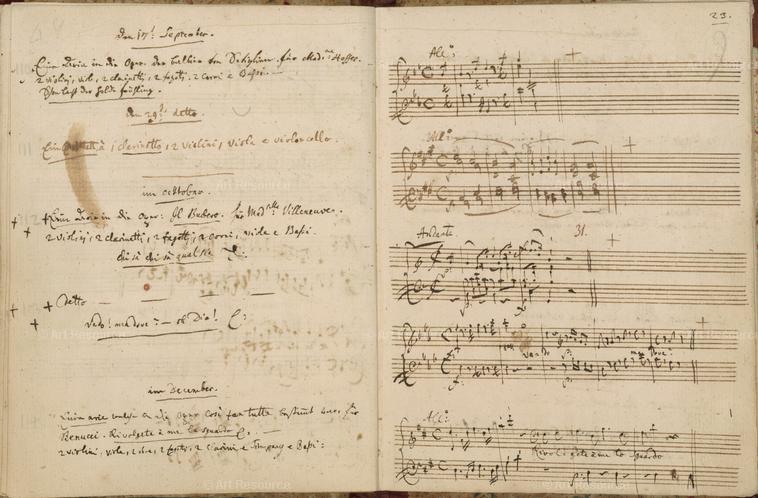 den 17t September.
Eine Aria in die Oper. der Bettler von für Mad:me Hoffer.
2 violini, viole, 2 clarinetti, 2 fagotti, 2 Corni e Bassi.
Schon lacht der holde frühling.
den 29t detto.
Ein à 1 clarinetto, 2 violini, viola e violoncello.
im october.
Eine Aria in die Oper: Il Burbero. für Mad:selle Villeneuve.
2 violini, 2 clarinetti, 2 fagotti, 2 corni, viole e Bassi.
chi sà chi sà qual sia Etc:
detto
Vado! ma dove? — oh Dio! Etc:
im December.
Eine arie welche in die Oper Così fan tutte bestimt war. für
Benucci. Rivolgete à me lo sguardo Etc: —
2 violini, viole, 2 oboe, 2 fagotti, 2 clarini e Timpany e Bassi:
23.
All:o
All:o
Andante.
31.
vado
ma dove?
All:o
Rivolgete a me lo sguardo
© Art Resource